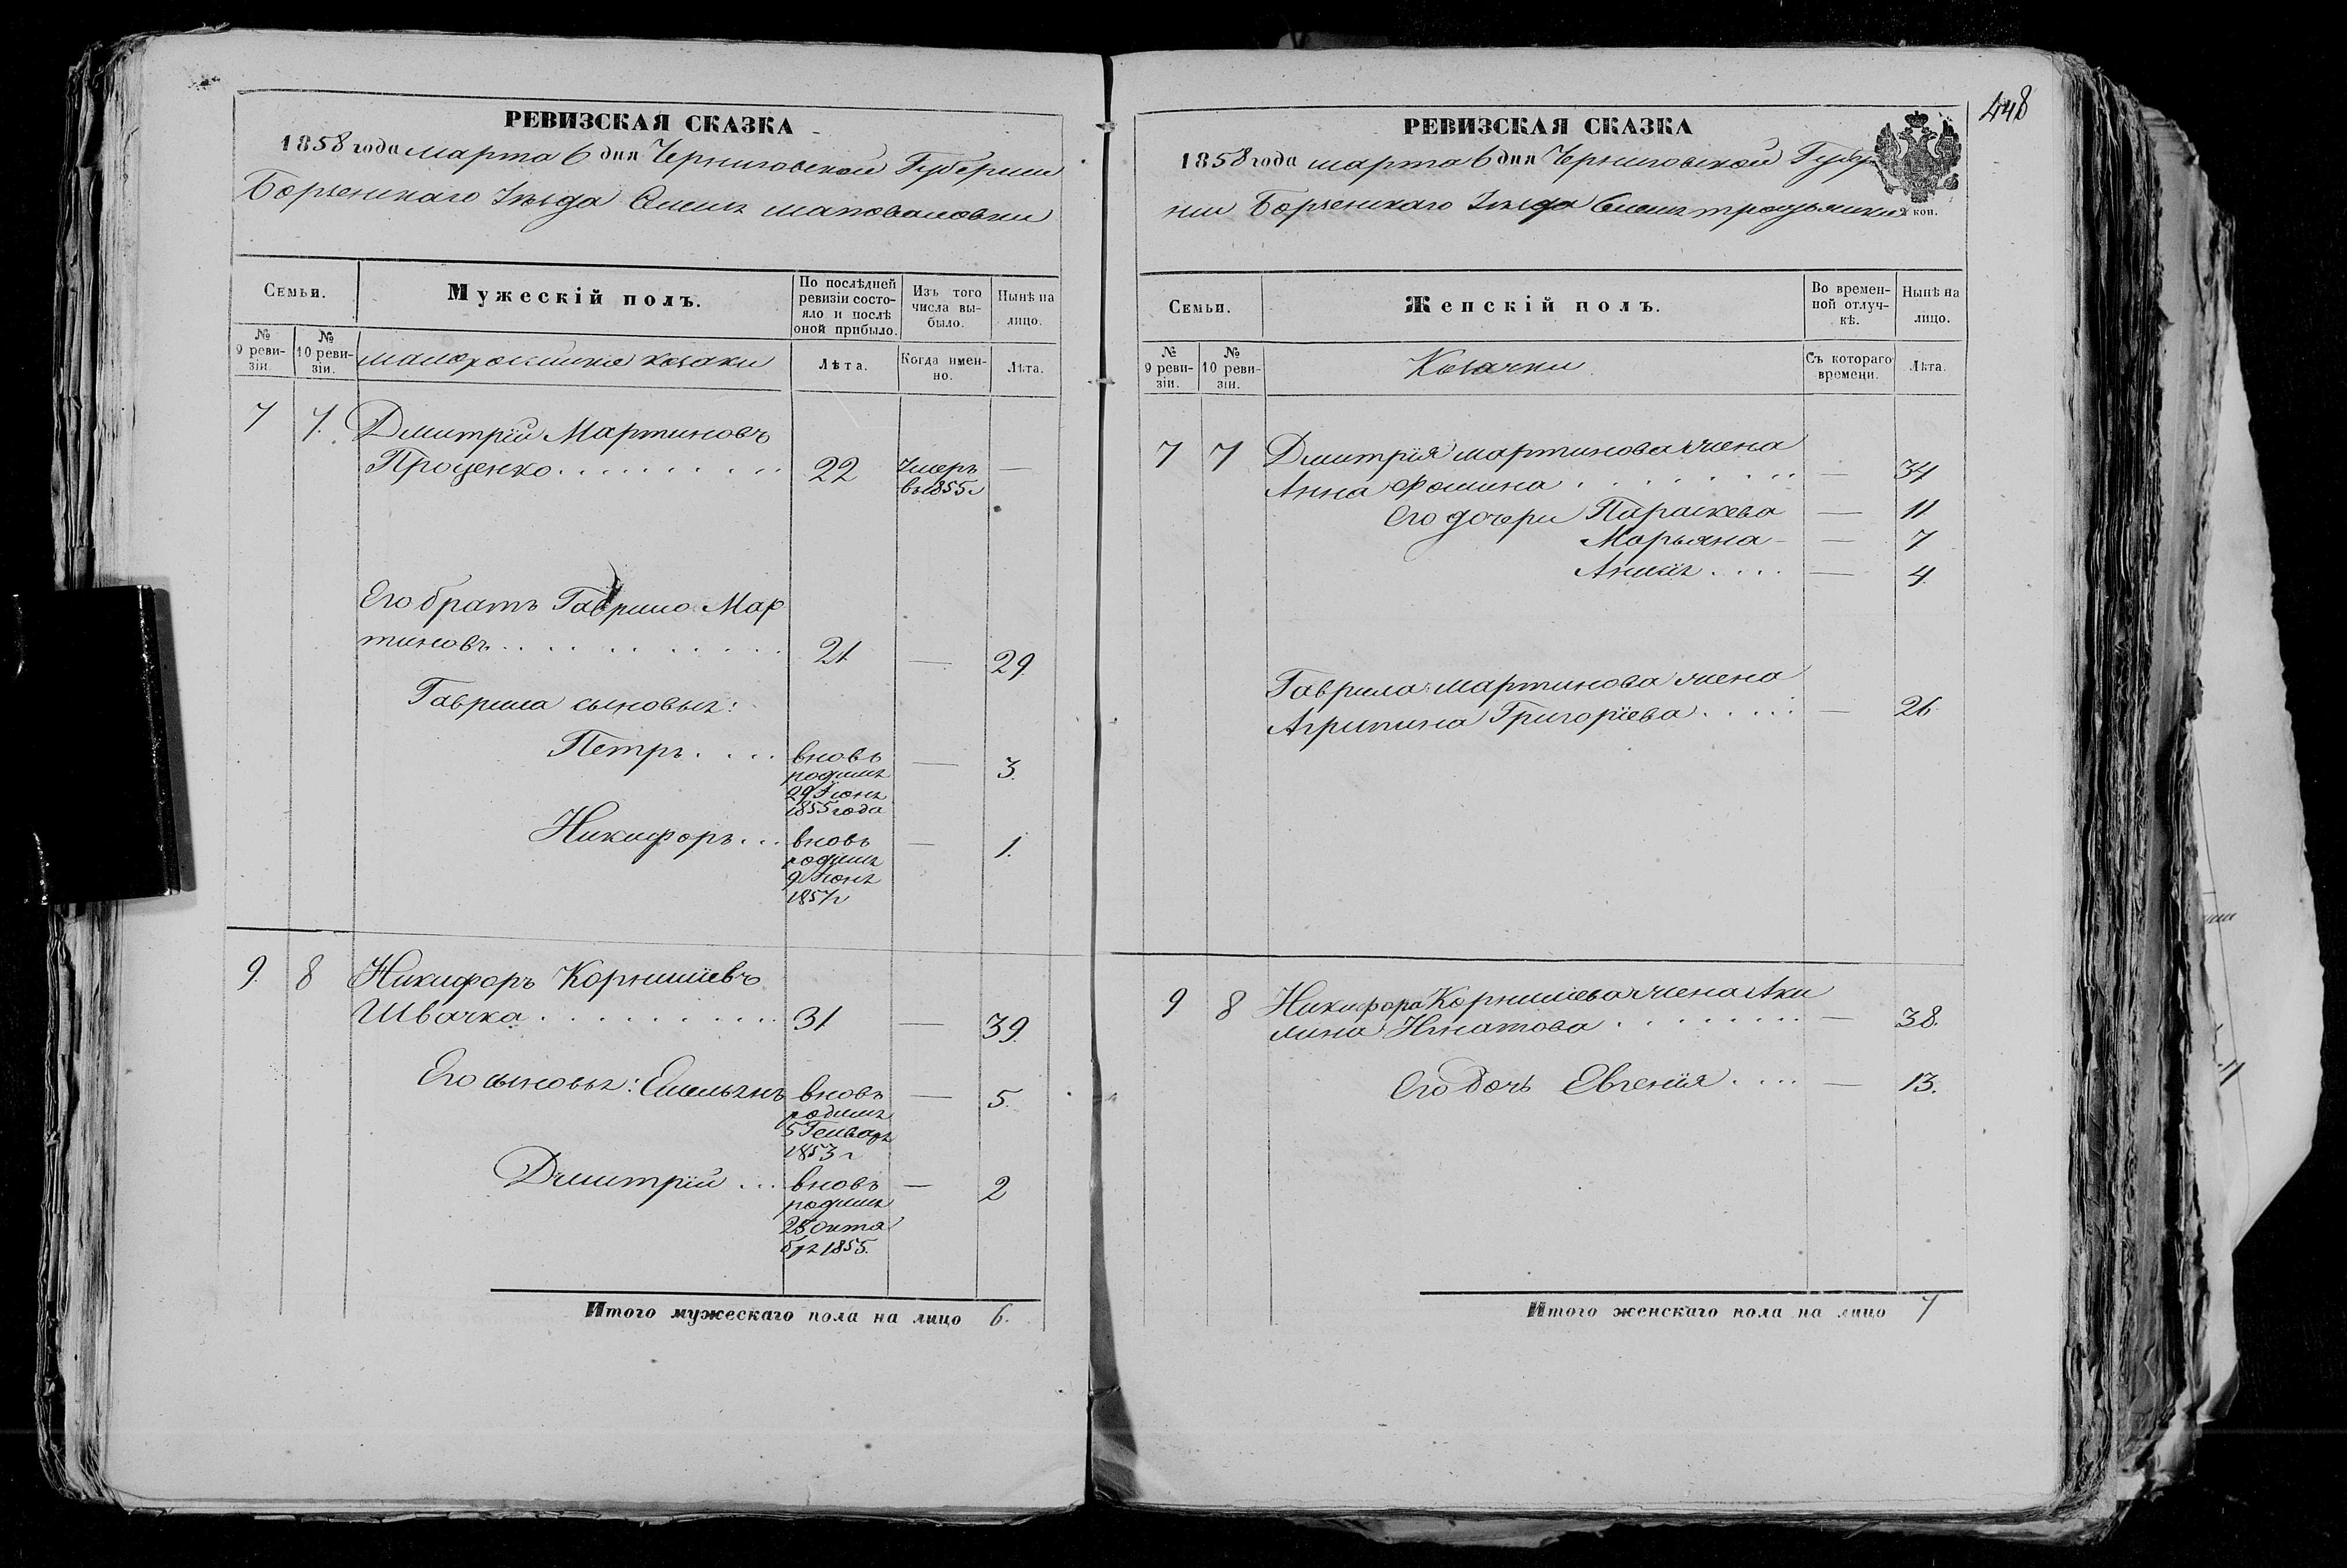 РЕВИЗСКАЯ СКАЗКА
1858 года марта 6 дня Черниговской Губернии
Борзенскаго Уезда Слихъ шаповаловки
Семьи.
Мужескій полъ.
По послѣдней ревизіи состо-
яло и послѣ
оной прибыло.
Изъ того
числа вы-
было.
Нынѣ на
лицо.
№
9 реви-
зіи.
№
10 реви-
зіи.
малороссійскіе козаки
Лѣта.
Когда имен-
но.
Лѣта.
7 7. Дмитрій Мартиновъ
Проценко . . . . . . . . . 22 Умеръ —
въ 1855 г
Его братъ Гаврило Мар
тиновъ . . . . . . . . . . 21 — 29.
Гаврила сыновья:
Петръ . . . . вновь — 3.
родился
29 Іюня
1855 года
Никифоръ . . . вновь — 1.
родился
9 Іюня
1857 г
9. 8 Никифоръ Корнилиевъ
Швачка . . . . . . . . . . 31 — 39.
Его сыновья: Емельянъ вновь — 5.
родился
5 Генваря
1853 г
Дмитрій . . . вновь — 2
родился
28 Октя
бря 1855.
Итого мужескаго пола на лицо 6.
448
РЕВИЗСКАЯ СКАЗКА
1858 года марта 6 дня Черниговской Губер
нии Борзенскаго Уезда
коп.
Семьи.
Женскій полъ.
Во времен-
ной отлуч-
кѣ.
Нынѣ на
лицо.
№
9 реви-
зіи.
№
10 реви-
зіи.
Козачки
Съ котораго
времени.
Лѣта.
7 7 Дмитрія мартинова жена
Анна Фомина . . . . . . . . — 34
Его дочери Параскева — 11
Марьяна - — 7
. . . . — 4
Гаврила мартинова жена
Агрипина Григоріева . . . . . — 26
9 8 Никифора Корнилиева жена Аки
лина Игнатова . . . . . . . . — 38.
Его дочь Евгенія . . . . — 13.
Итого женскаго пола на лицо 7